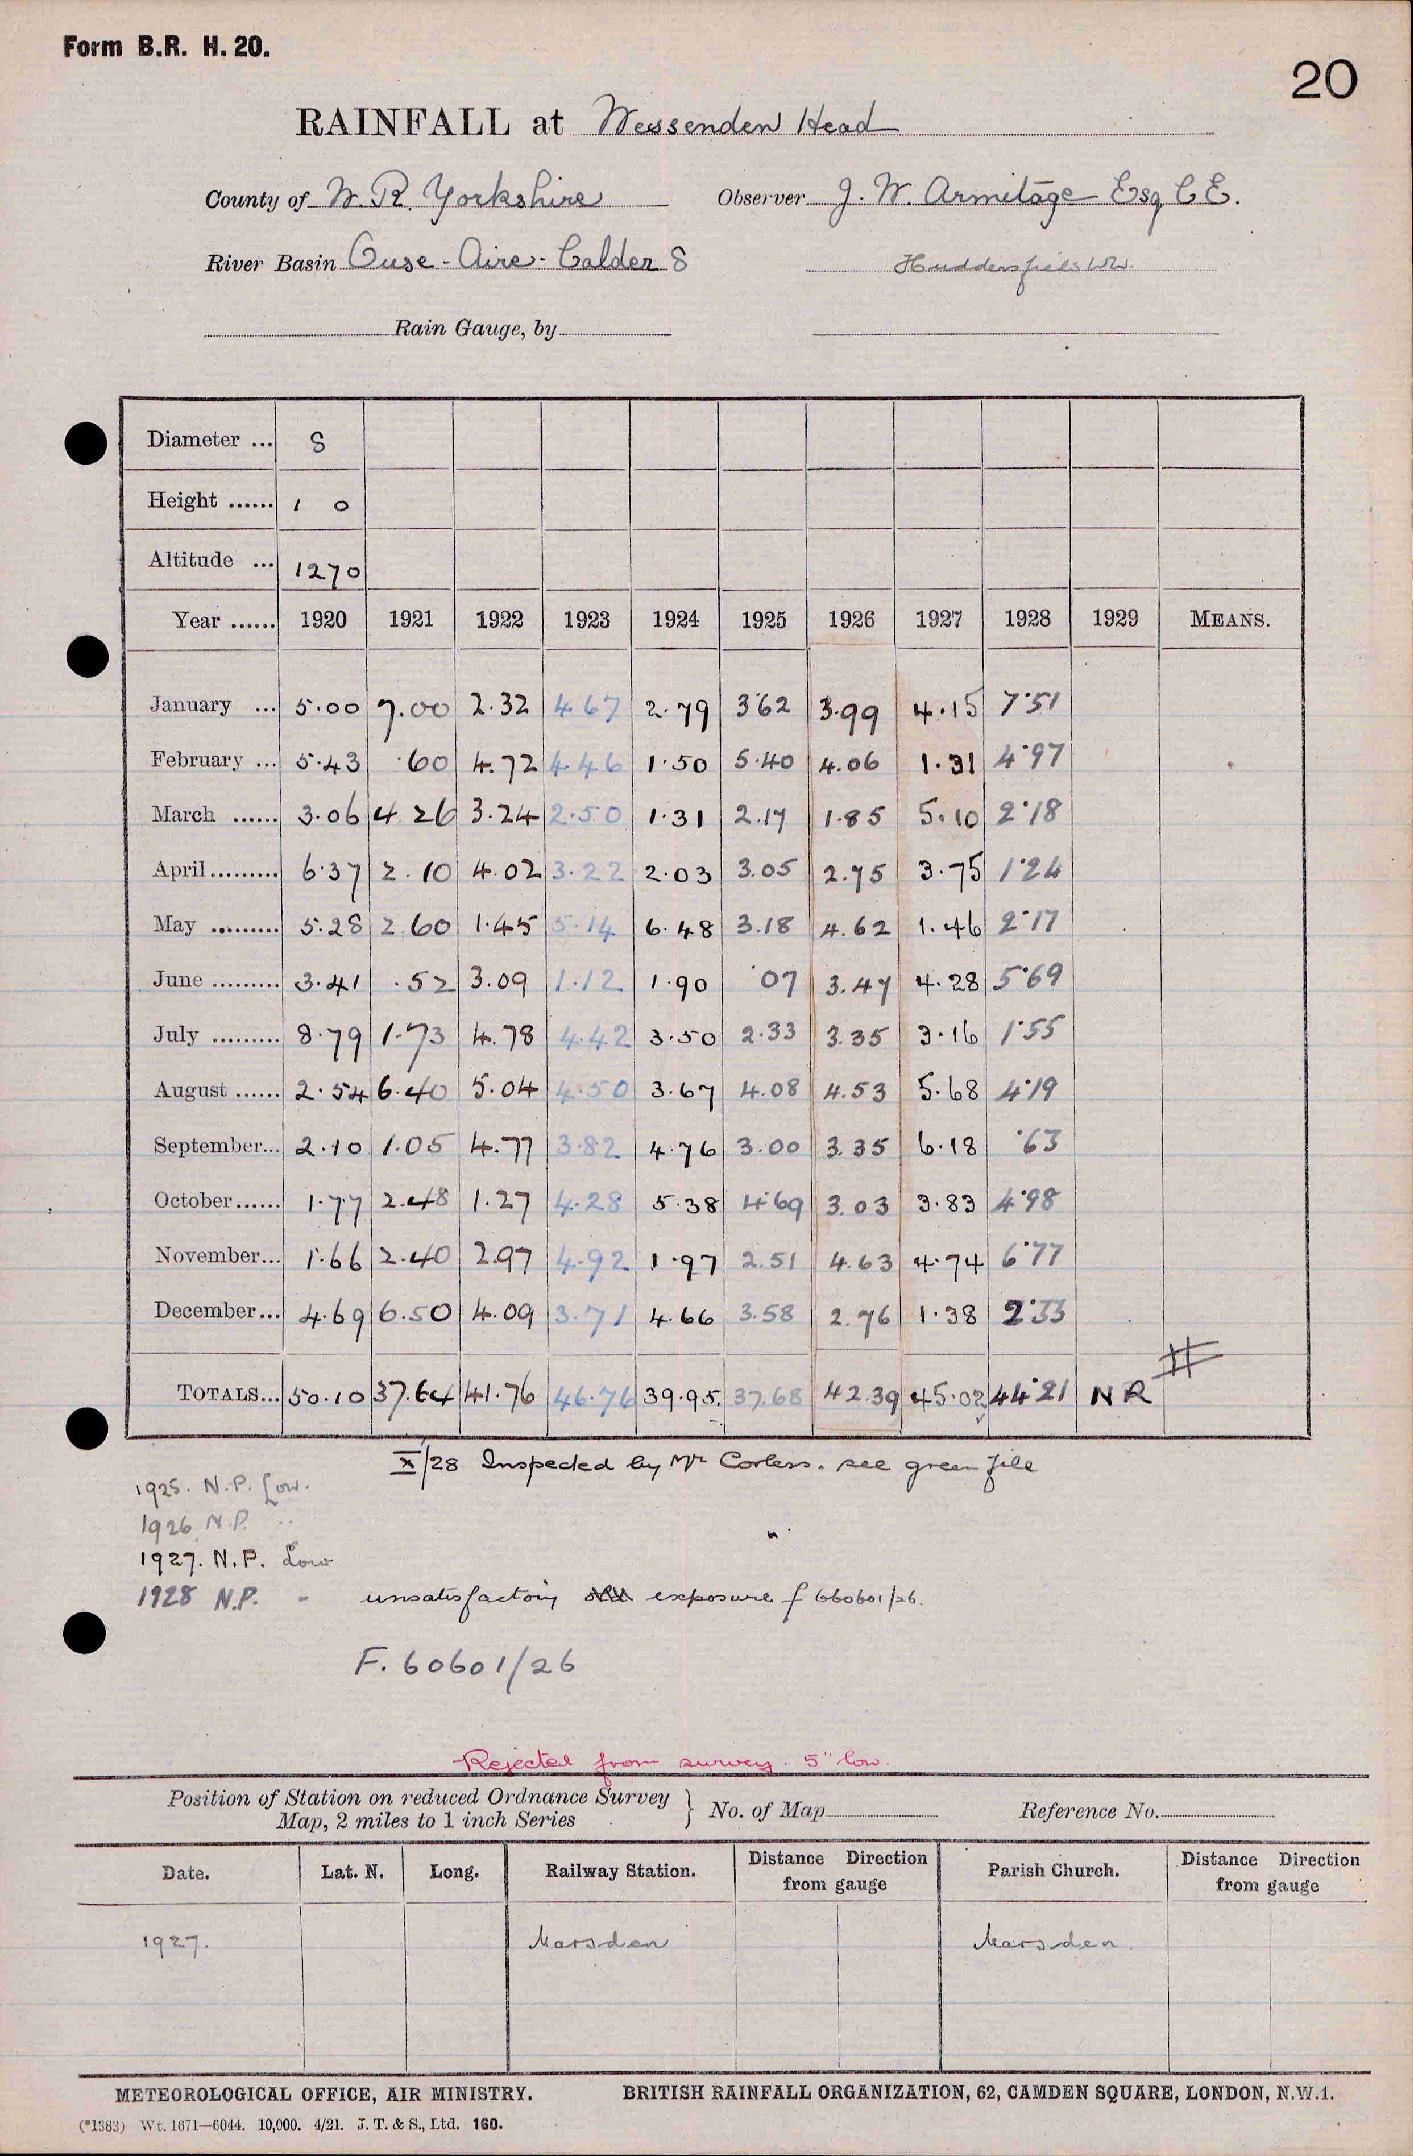 Form B.R. H. 20.
20
RAINFALL at Wessenden Head
County of W. R. Yorkshire Observer J. W. Armitage Esq C E.
River Basin Ouse - Aire - Calder S Huddersfield WW.
Rain Gauge, by
Diameter ... 8
Height ...... 1 0
Altitude ... 1270
Year ...... 1920 1921 1922 1923 1924 1925 1926 1927 1928 1929 MEANS.
January ... 5.00 7.00 2.32 4.67 2.79 3.62 3.99 4.15 7.51
February ... 5.43 .60 4.72 4.46 1.50 5.40 4.06 1.31 4.97
March ...... 3.06 4.26 3.24 2.50 1.31 2.17 1.85 5.10 2.18
April ......... 6.37 2.10 4.02 3.22 2.03 3.05 2.75 3.75 1.24
May ......... 5.28 2.60 1.45 5.14 6.48 3.18 4.62 1.46 2.17
June ......... 3.41 .52 3.09 1.12 1.90 .07 3.47 4.28 5.69
July ......... 8.79 1.73 4.78 4.42 3.50 2.33 3.35 3.16 1.55
August ...... 2.54 6.40 5.04 4.50 3.67 4.08 4.53 5.68 4.19
September... 2.10 1.05 4.77 3.82 4.76 3.00 3.35 6.18 .63
October...... 1.77 2.48 1.27 4.28 5.38 4.69 3.03 3.83 4.98
November... 1.66 2.40 2.97 4.92 1.97 2.51 4.63 4.74 6.77
December... 4.69 6.50 4.09 3.71 4.66 3.58 2.76 1.38 2.33
TOTALS... 50.10 37.64 41.76 46.76 39.95 37.68 42.39 45.02 44.21 NR #
X/28 Inspected by Mr Corless. see green file
1925. N.P. Low.
1926 N.P. "
1927. N.P. Low
1928 N.P. - unsatisfactory exposure f 660601/26.
F. 60601/26
Rejected from survey. 5" low.
Position of Station on reduced Ordnance Survey Map, 2 miles to 1 inch Series } No. of Map Reference No.
Date. Lat. N. Long. Railway Station. Distance Direction from gauge Parish Church. Distance Direction from gauge
1927. Marsden Marsden.
METEOROLOGICAL OFFICE, AIR MINISTRY. BRITISH RAINFALL ORGANIZATION, 62, CAMDEN SQUARE, LONDON, N.W.1.
(*1383) Wt. 1671—6044. 10,000. 4/21. J. T. & S., Ltd. 160.